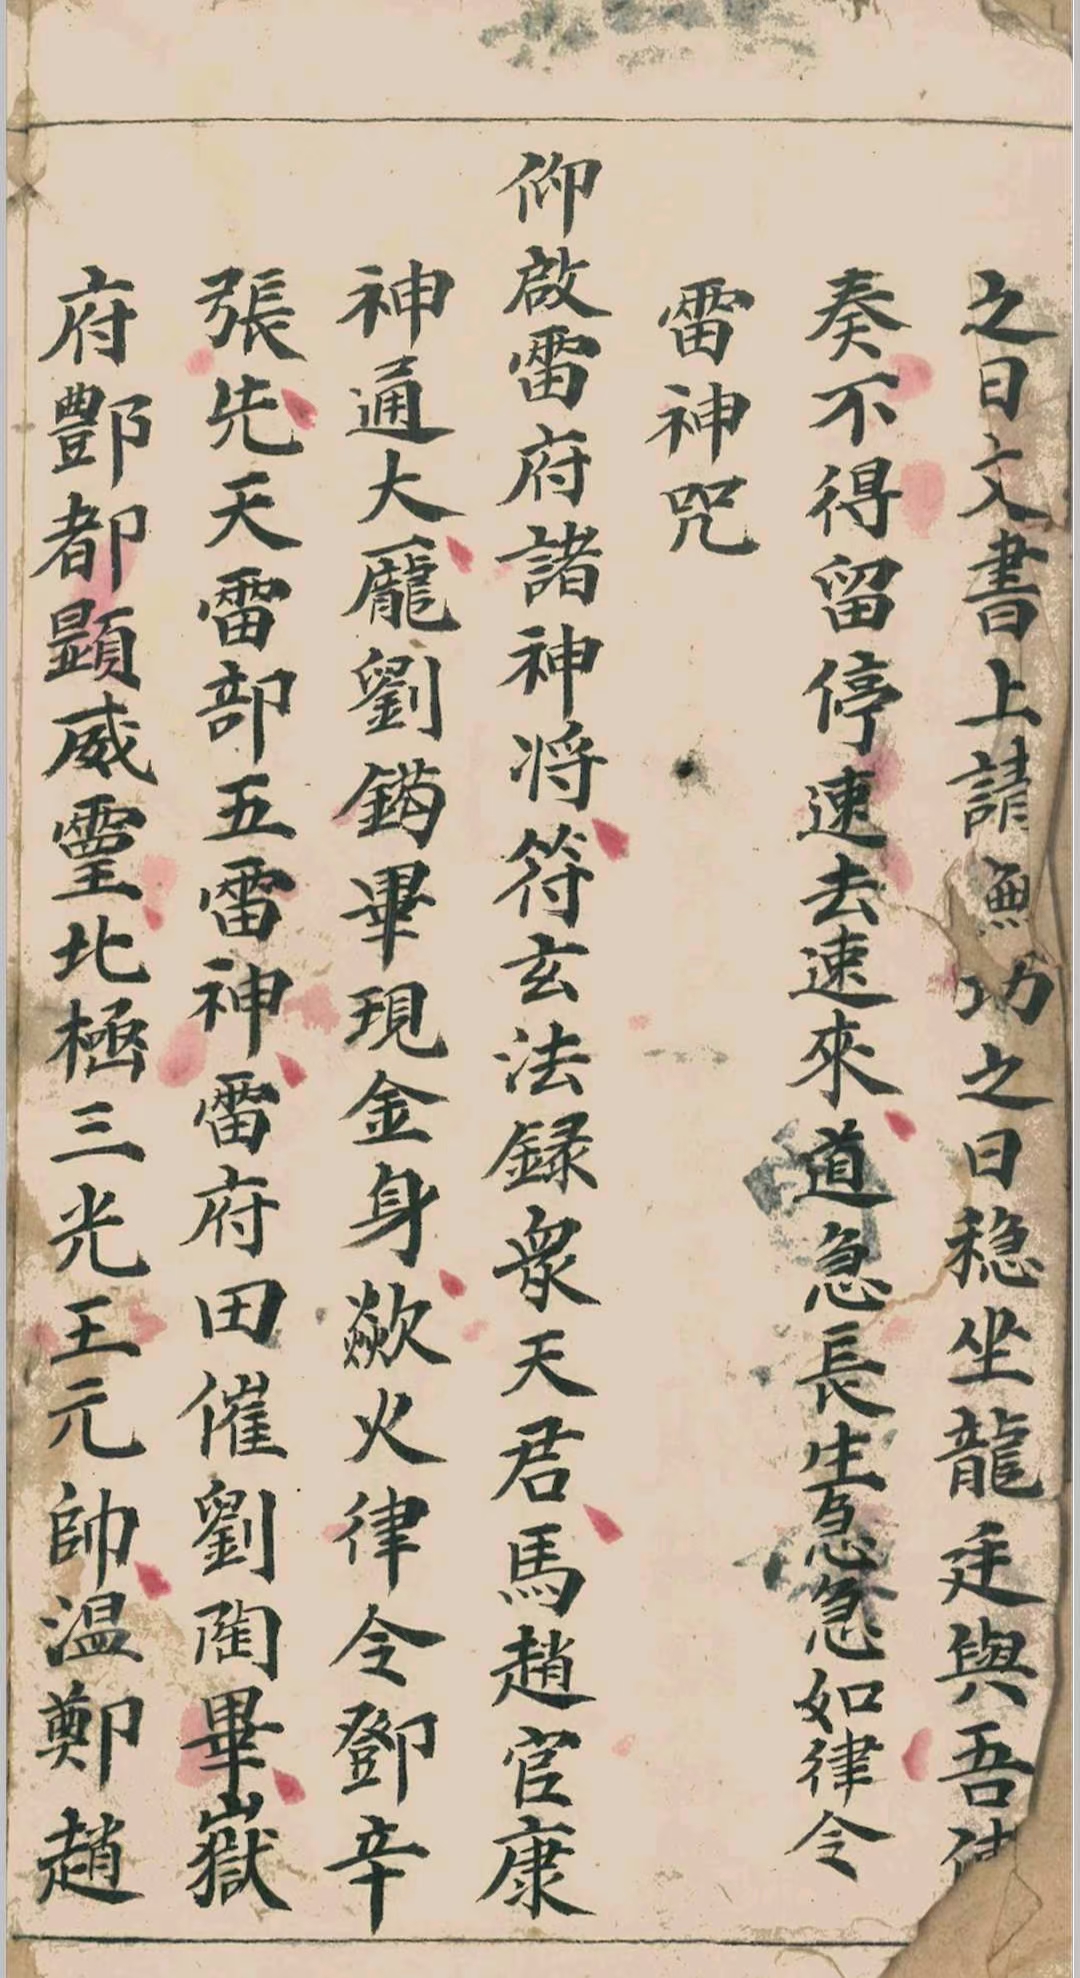 之日文書上請無功之日稳坐龍廷與吾
奏不得留停速去速來道急長生急急如律令
雷神咒
仰啟雷府諸神将符玄法録衆天君馬趙官康
神通大龐劉鍧畢現金身歘火律令鄧辛
張先天雷部五雷神雷府田催劉陶畢嶽
府酆都顕威靈北極三光王元帥温鄭趙